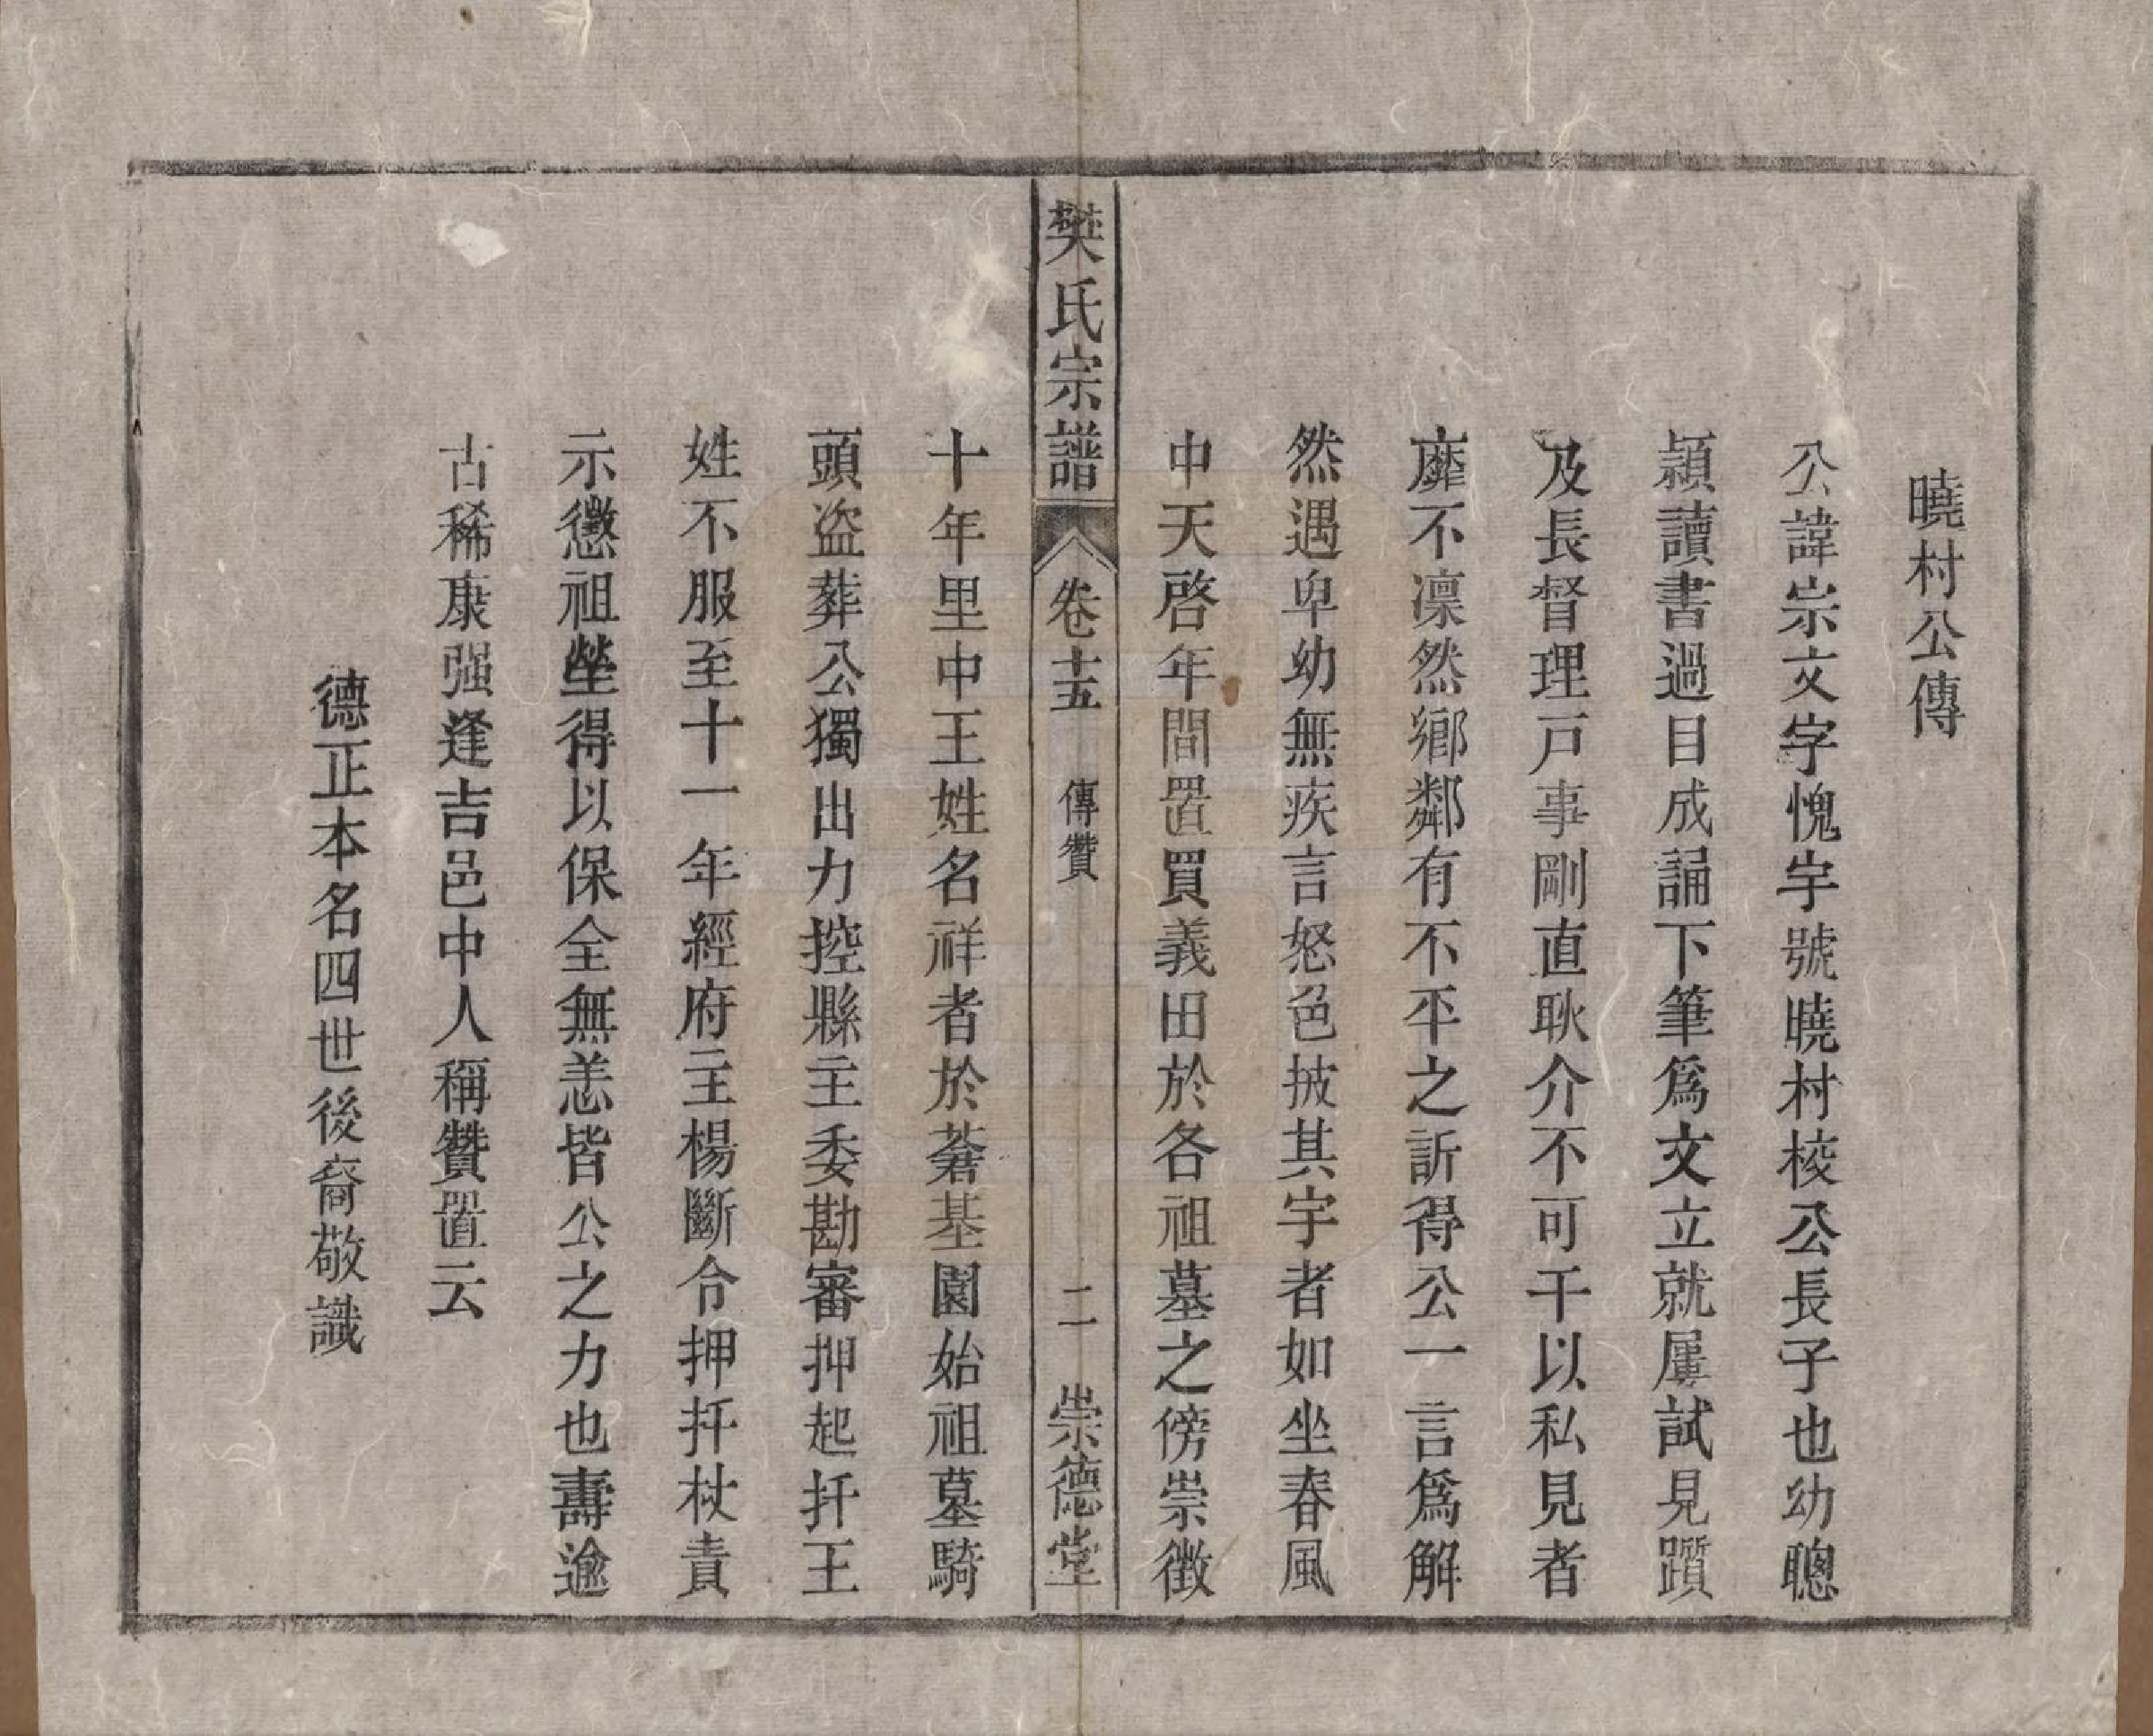 曉村公傳
公諱崇文字愧宇號曉村梭公長子也幼聰
頴讀書過目成誦下筆爲文立就屢試見躓
及長督理戸事剛直耿介不可干以私見者
靡不凜然鄉鄰有不平之訴得公一言爲解
然遇卑幼無疾言怒色披其宇者如坐春風
中天啓年間置買義田於各祖墓之傍崇徵
樊氏宗譜
卷十五
傳贊
二
崇德堂
十年里中王姓名祥者於菴基園始祖墓騎
頭盜葬公獨出力控縣主委勘審押起扦王
姓不服至十一年經府主楊斷令押扦杖責
示懲祖塋得以保全無恙皆公之力也壽逾
古稀康强逢吉邑中人稱贊置云
德正本名四世後裔敬識